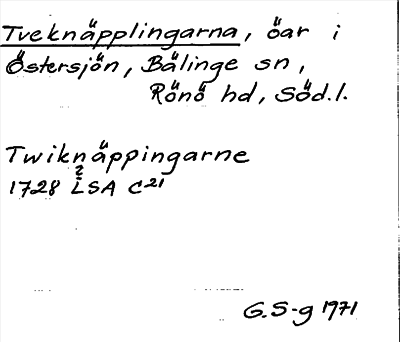 Tveknäpplingarna, öar i
Östersjön, Bälinge sn,
Rönö hd, Söd.l.
Twiknäppingarne
1728 LSA C21
G.S-g 1971